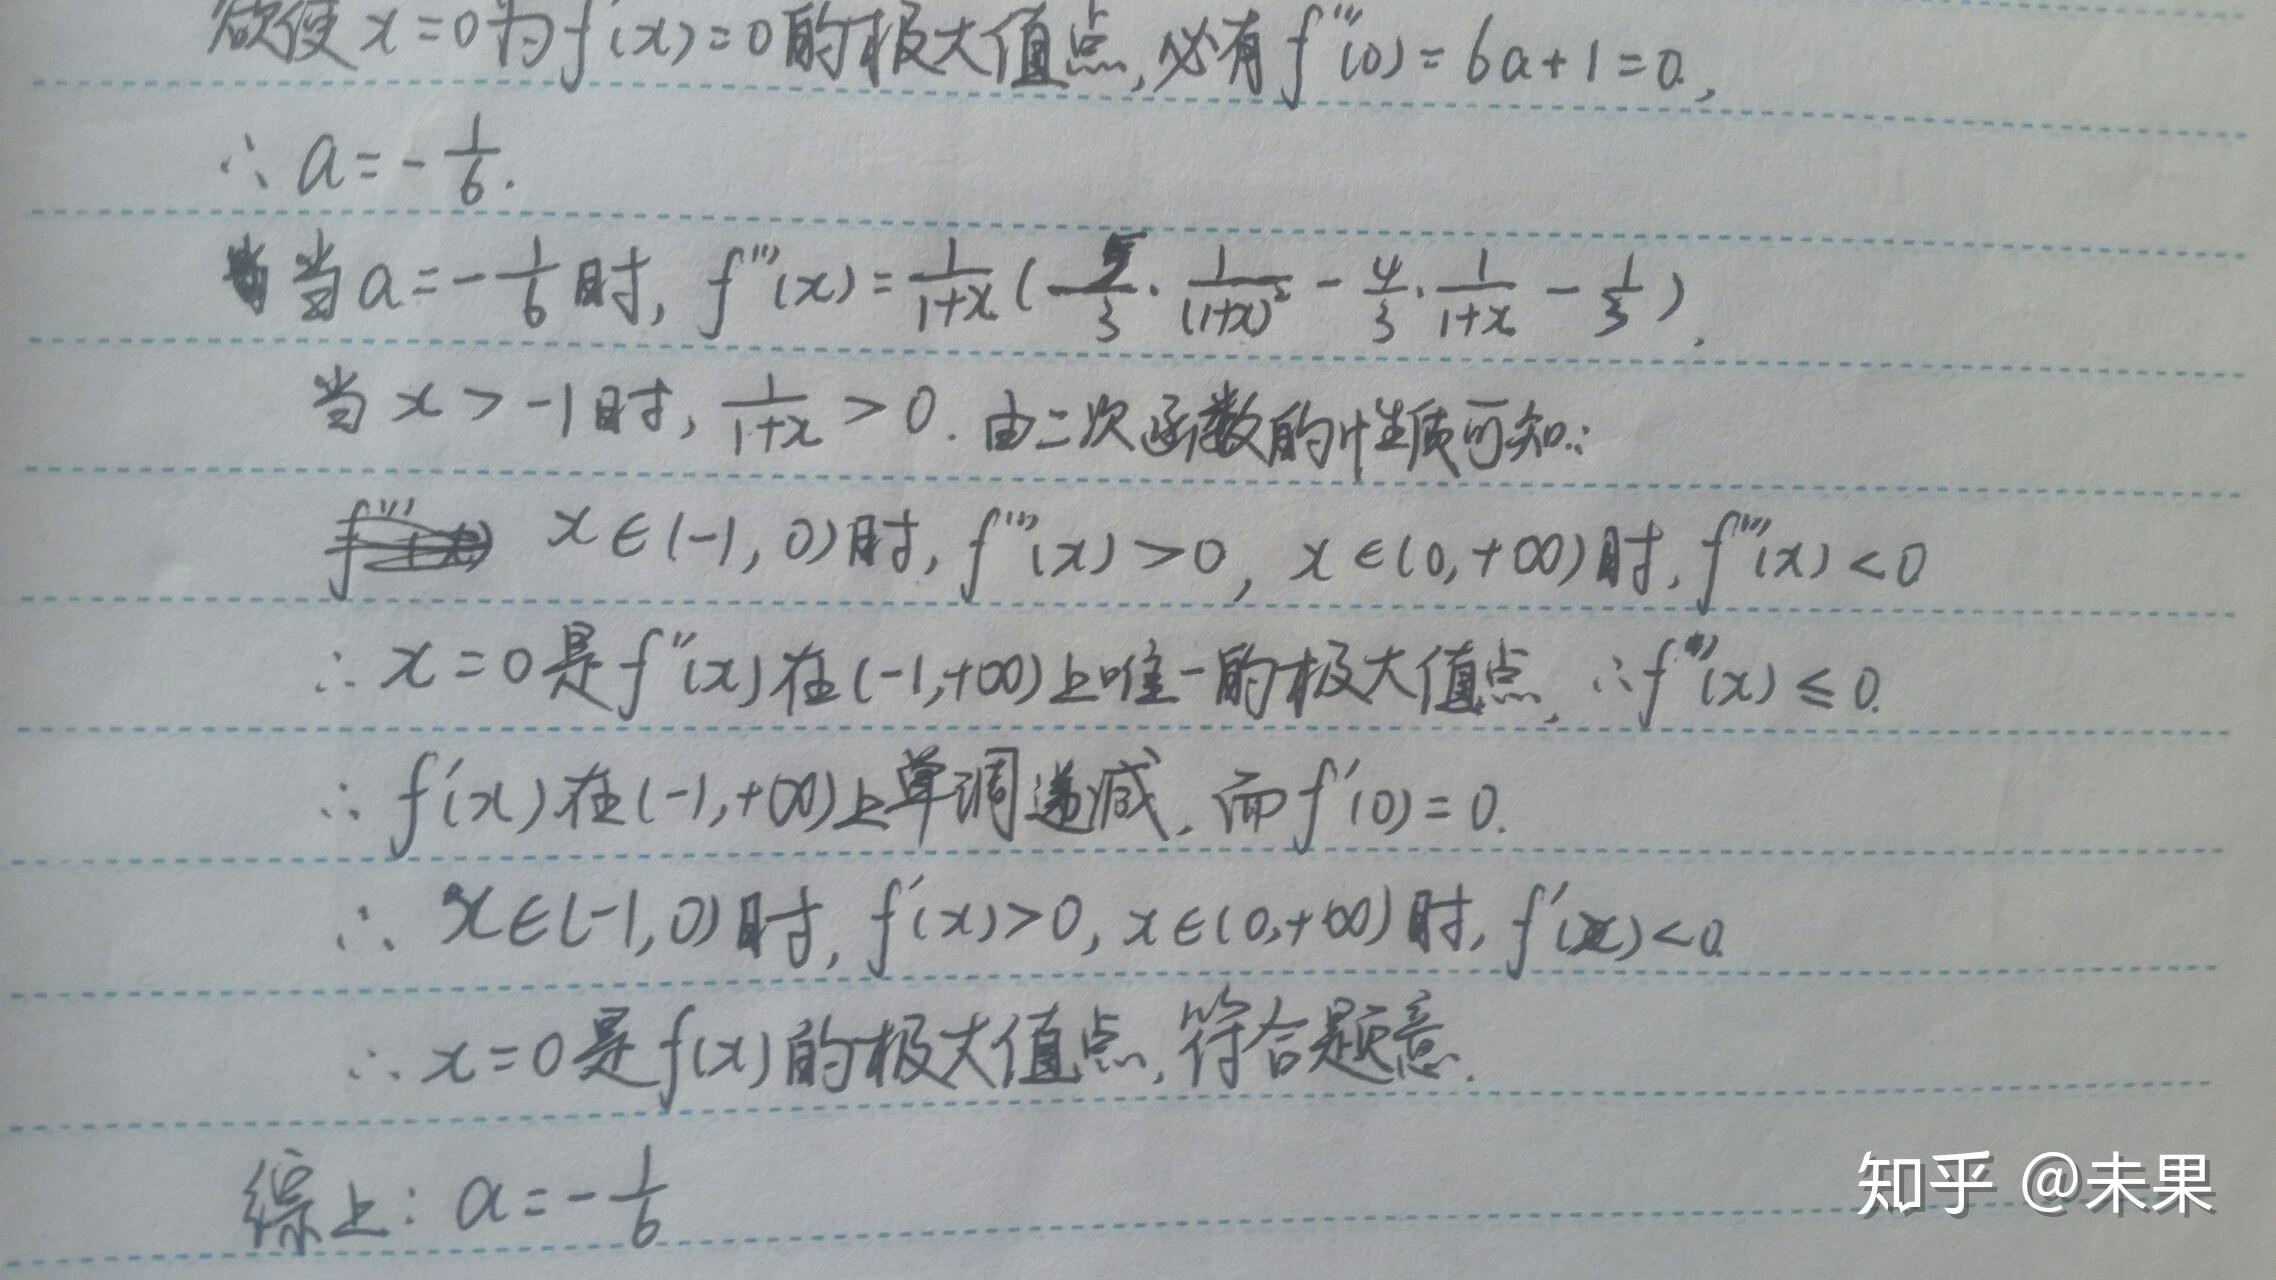 欲使x=0为f'(x)=0的极大值点,必有f'''(0)=6a+1=0,
∴a=-1/6.
当a=-1/6时,f'''(x)=1/(1+x)(5/3·1/(1+x)²-4/3·1/(1+x)-1/3).
当x>-1时,1/(1+x)>0.由二次函数的性质可知:
x∈(-1,0)时,f'''(x)>0,x∈(0,+∞)时,f'''(x)<0
∴x=0是f''(x)在(-1,+∞)上唯一的极大值点,∴f''(x)≤0.
∴f'(x)在(-1,+∞)上单调递减,而f'(0)=0.
∴x∈(-1,0)时,f'(x)>0,x∈(0,+∞)时,f'(x)<0.
∴x=0是f(x)的极大值点,符合题意.
综上:a=-1/6
知乎 @未果